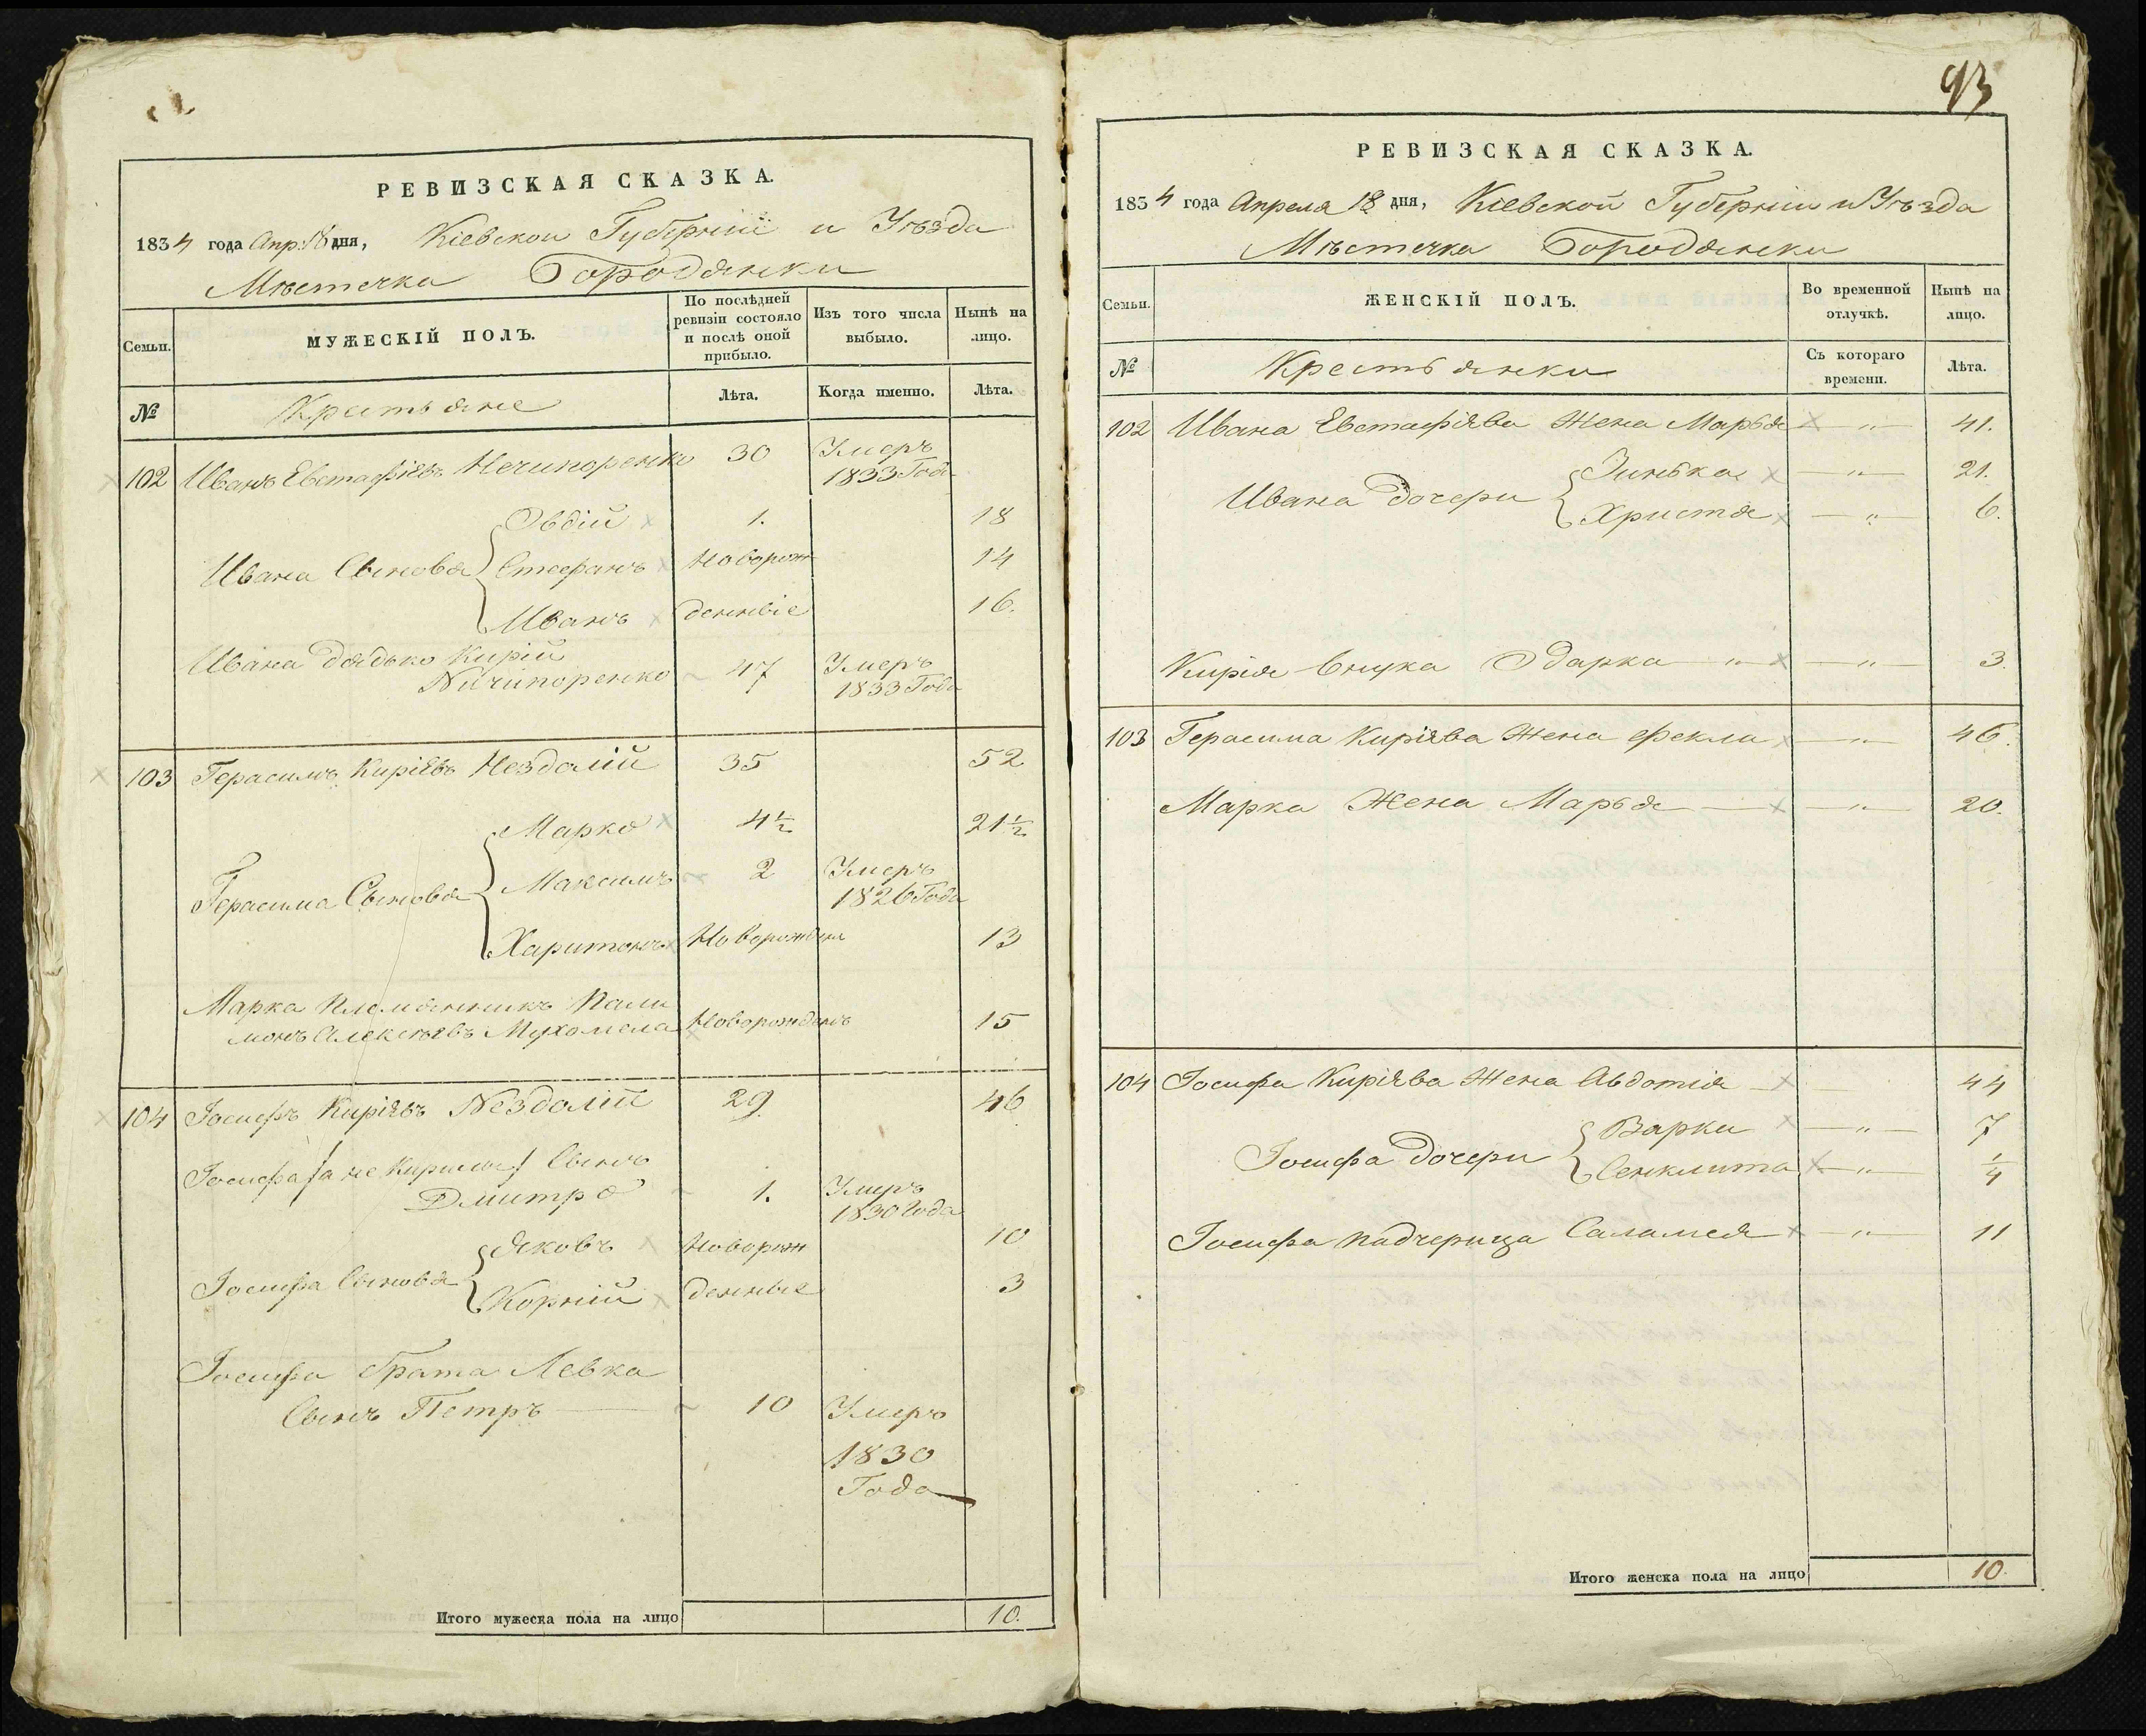 РЕВИЗСКАЯ СКАЗКА.
1834 года Апр: 18 дня, Кіевской Губерніи и Уѣзда
Мѣстечка Бородянки
Семьи.
МУЖЕСКІЙ ПОЛЪ.
По послѣдней
ревизіи состояло
и послѣ оной
прибыло.
Изъ того числа
выбыло.
Нынѣ на
лицо.
№
Крестьяне
Лѣта.
Когда именно.
Лѣта.
102 Иванъ Евстафіевъ Нечипоренко 30 Умеръ
1833 Года
Овдій 1. 18
Ивана Сыновья Стефанъ Новорож 14
Иванъ денніе 16.
Ивана дядько Кирій
Ничипоренко 47 Умеръ
1833 Года
103 Герасимъ Киріевъ Нездолій 35 52
Марко 4½ 21½
Герасима Сыновья Максимъ 2 Умеръ
1826 Года
Харитонъ Новорожден 13
Марка племянникъ Пали
монъ Алексѣевъ Мухомела Новорожденъ 15
104 Іосифъ Киріевъ Нездолій 29 46
Іосифа /а не Кирила/ Сынъ
Дмитро 1. Умеръ
1830 Года
Яковъ Новорож 10
Іосифа Сыновья Корній денные 3
Іосифа брата Левка
Сынъ Петръ 10 Умеръ
1830
Года
Итого мужеска пола на лицо 10.
93
РЕВИЗСКАЯ СКАЗКА.
1834 года Апреля 18 дня, Кіевской Губерніи и Уѣзда
Мѣстечка Бородянки
Семьи.
ЖЕНСКІЙ ПОЛЪ.
Во временной
отлучкѣ.
Нынѣ на
лицо.
№
Крестьянки
Съ котораго
времени.
Лѣта.
102 Ивана Евстафіева Жена Марья — „ — 41.
Зинька — „ — 21.
Ивана дочери Христя — „ — 6.
Кирія внука Одарка — „ — 3.
103 Герасима Киріева Жена Фекла — „ — 46.
Марка Жена Марья — „ — 20.
104 Іосифа Киріева Жена Авдотія 44
Варка — „ — 7
Іосифа дочери Сенклита — „ — ¼
Іосифа падчерица Саламея — „ — 11
Итого женска пола на лицо 10.